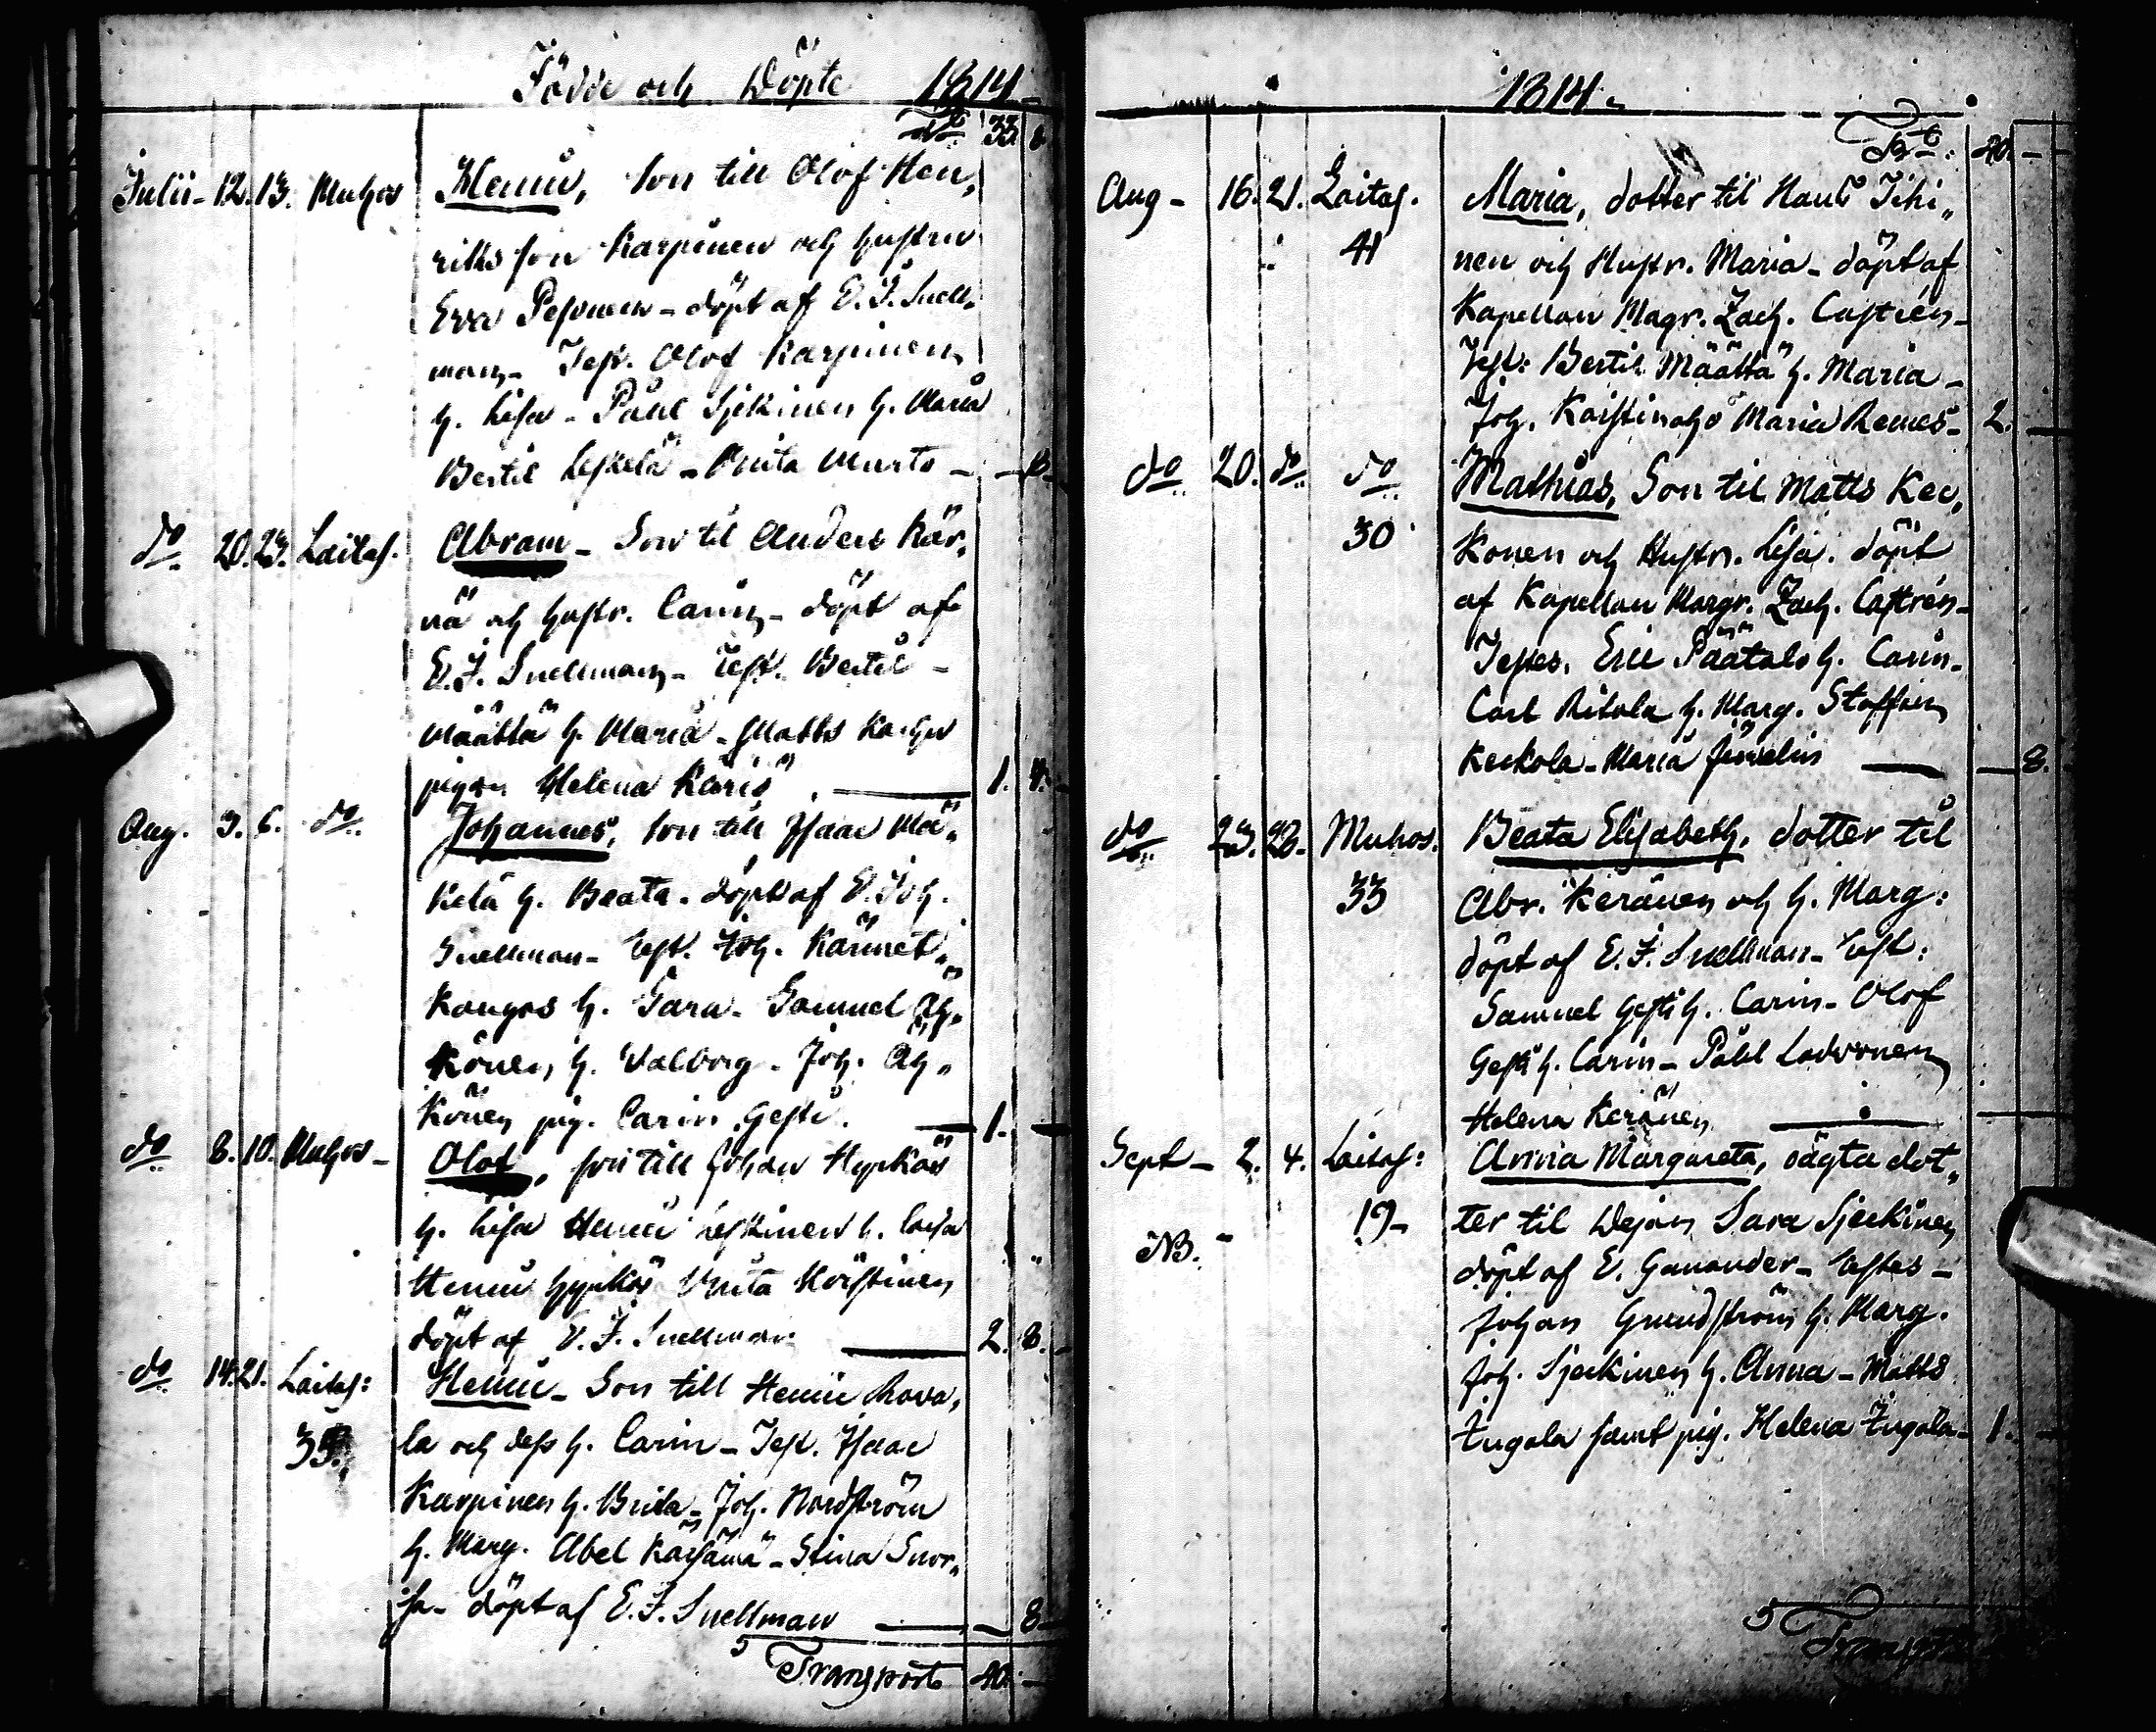 Födde och Döpte 1814
Tr. 33 8
Julii - 12. 13. Muhos Henric, Son till Olof Hen,
riks son Karpinen och hustru
Eva Pesonen - döpt af E. J. Snell,
man - Test. Olof Karpinen
h. Lisa - Påhl Sjekinen h. Maria
Bertil Leskelä - Brita Murto - - 8
do 20. 23. Laitas. Abram - Son til Anders Kär,
nä och hustr. Carin - döpt af
E. J. Snellman - test. Bertil -
Määttä h. Maria - Matts Karhu
pigan Helena Käris 1. 4.
Aug. 3. 6. do Johannes, Son till Isaac Mä,
kelä h. Beata - döpt af E. Joh.
Snellman - test. Joh. Kärmet,
kangas h. Sara - Samuel Ah,
könen h. Valborg - Joh. Ah,
könen pig. Carin Gesti. 1. -
do 8. 10. Muhos - Olof, son till Johan Hyrkäs
h. Lisa Henric Leskinen h. Caisa
Henric Hyrkäs Brita Kärstinen
döpt af E. J. Snellman 2. 8.
do 14. 21. Laitas: Henric - Son till Henric Rova,
35. la och dess h. Carin - Test. Isaac
Karpinen h. Brita - Joh. Nordström
h. Marg. Abel Käisämä - Stina Suor,
sa - döpt af E. J. Snellman - 8
5 Transport 40. -
1814.
Trt. 40. -
Aug - 16. 21. Laitas. Maria, dotter til Hans Tihi,
41 nen och Hustr. Maria - döpt af
Kapellan Magr. Zach. Castrén -
Test: Bertil Määttä h. Maria -
Joh. Kaistinaho Maria Remes - 2. -
do 20. do do Mathias, Son til Matts Kec,
30 konen och Hustr. Lisa. döpt
af Kapellan Magr. Zach. Castrén -
Testes. Eric Päätalo h. Carin -
Carl Ritola h. Marg. Staffan
Keckola - Maria Juvelin - 8.
do 23. 28. Muhos. Beata Elisabeth, dotter til
33 Abr. Keränen och h. Marg:
döpt af E. J. Snellman - test:
Samuel Gesti h. Carin - Olof
Gesti h. Carin - Påhl Lovonen
Helena Keränen
Sept - 2. 4. Laitas: Anna Margareta, oägta dot,
19 - ter til Dejan Sara Sjeckinen
NB. - döpt af E. Ganander - Testes -
Johan Grundström h. Marg.
Joh. Sjeckinen h. Anna - Matts
Tugola samt pig. Helena Tugola - 1. -
5 Transport